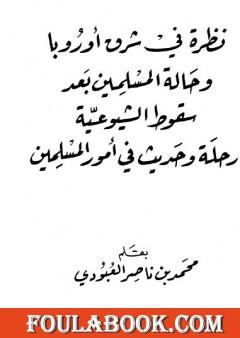 نظرة في شرق أوروبا
وحالة المسلمين بعد
سقوط الشيوعية
رحلة وحديث في أمور المسلمين
بقلم
محمد بن ناصر العبودي
FOULABOOK.COM